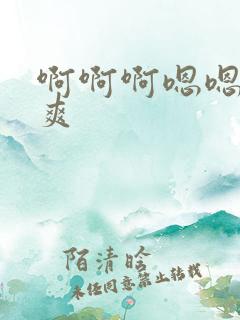 啊啊啊嗯嗯
爽
陌清晗
未经同意禁止转载